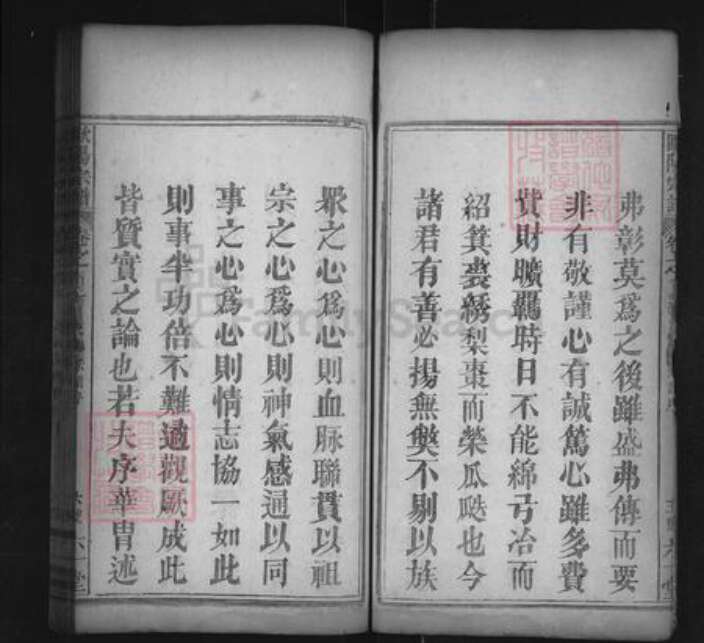 弗彰莫爲之後雖盛弗傳而要
非有敬謹心有誠篤心雖多費
貲財曠羈時日不能綿弓冶而
紹箕裘綉梨棗而榮瓜瓞也今
諸君有善必揚無獘不剔以族
衆之心爲心則血脉聯貫以祖
宗之心爲心則神氣感通以同
事之心爲心則情志協一如此
則事半功倍不難遹觀厥成此
皆質實之論也若夫序華冑述
FamilySearch